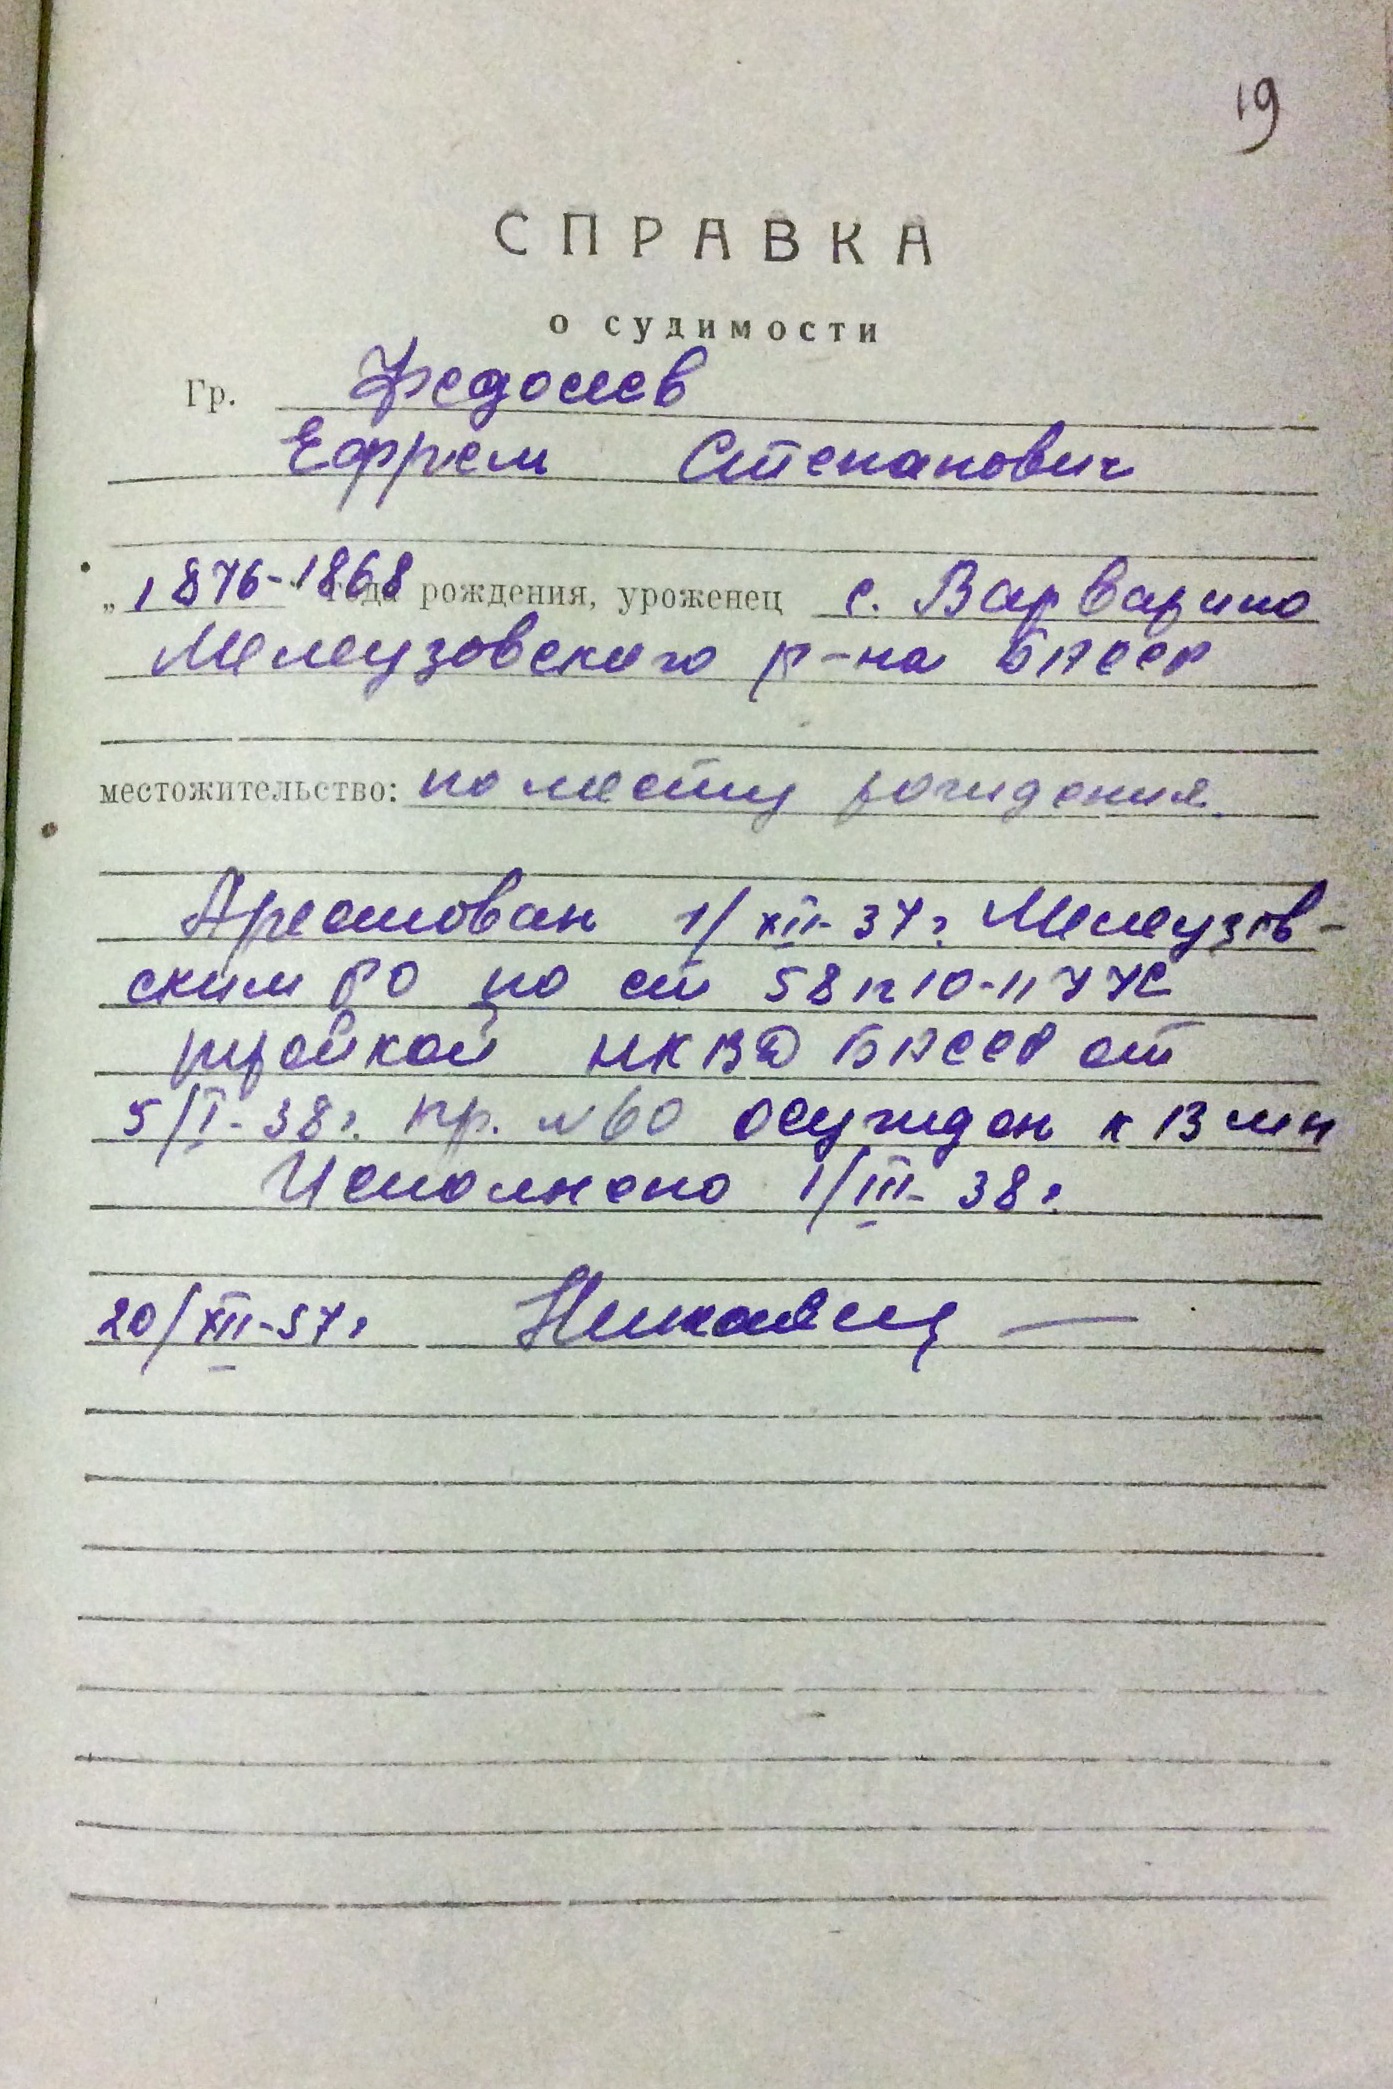 19
СПРАВКА
о судимости
Гр. Федосеев
Ефрем Степанович
„1876-1868 года рождения, уроженец с. Варварино
Мелеузовского р-на БАССР
местожительство: по месту рождения.
Арестован 1/XII-37г. Мелеузов-
ским РО по ст 58 п 10-11 УК
тройкой НКВД БАССР от
5/I-38г. пр. №60 осужден к ВМН
Исполнено 1/III-38г.
20/XII-57г